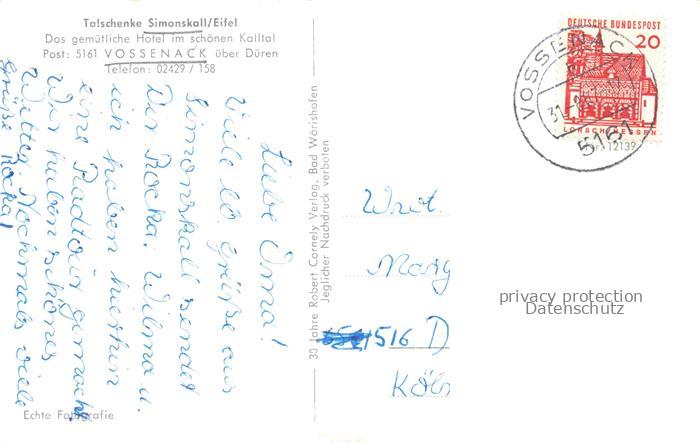 Talschenke Simonskall/Eifel
Das gemütliche Hotel im schönen Kalltal
Post: 5161 VOSSENACK über Düren
Telefon: 02429 / 158
Liebe Oma!
Viele lb. Grüße aus
Simonskall sendet
Dir Rocka. Wilma u.
ich haben hierhin
eine Radtour gemacht.
Wir haben schönes
Wetter. Nochmals viele
Grüße Rocka!
Echte Fotografie
30 Jahre Robert Cornely Verlag, Bad Wörishofen
Jeglicher Nachdruck verboten
DEUTSCHE BUNDESPOST
20
LORSCH/HESSEN
VOSSENACK
5161
12139
Wwt.
Marg
516 D
Köln
privacy protection
Datenschutz